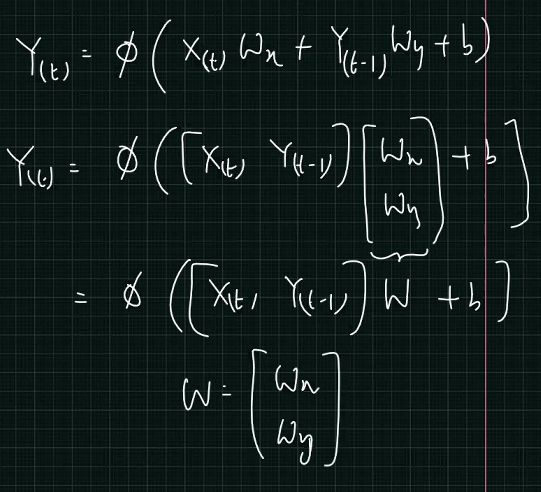 Y(t) = φ ( X(t) Wx + Y(t-1) Wy + b )
Y(t) = φ ( [ X(t) Y(t-1) ] [ Wx Wy ] + b ]
= φ ( [ X(t) Y(t-1) ] W + b ]
W = [ Wx Wy ]